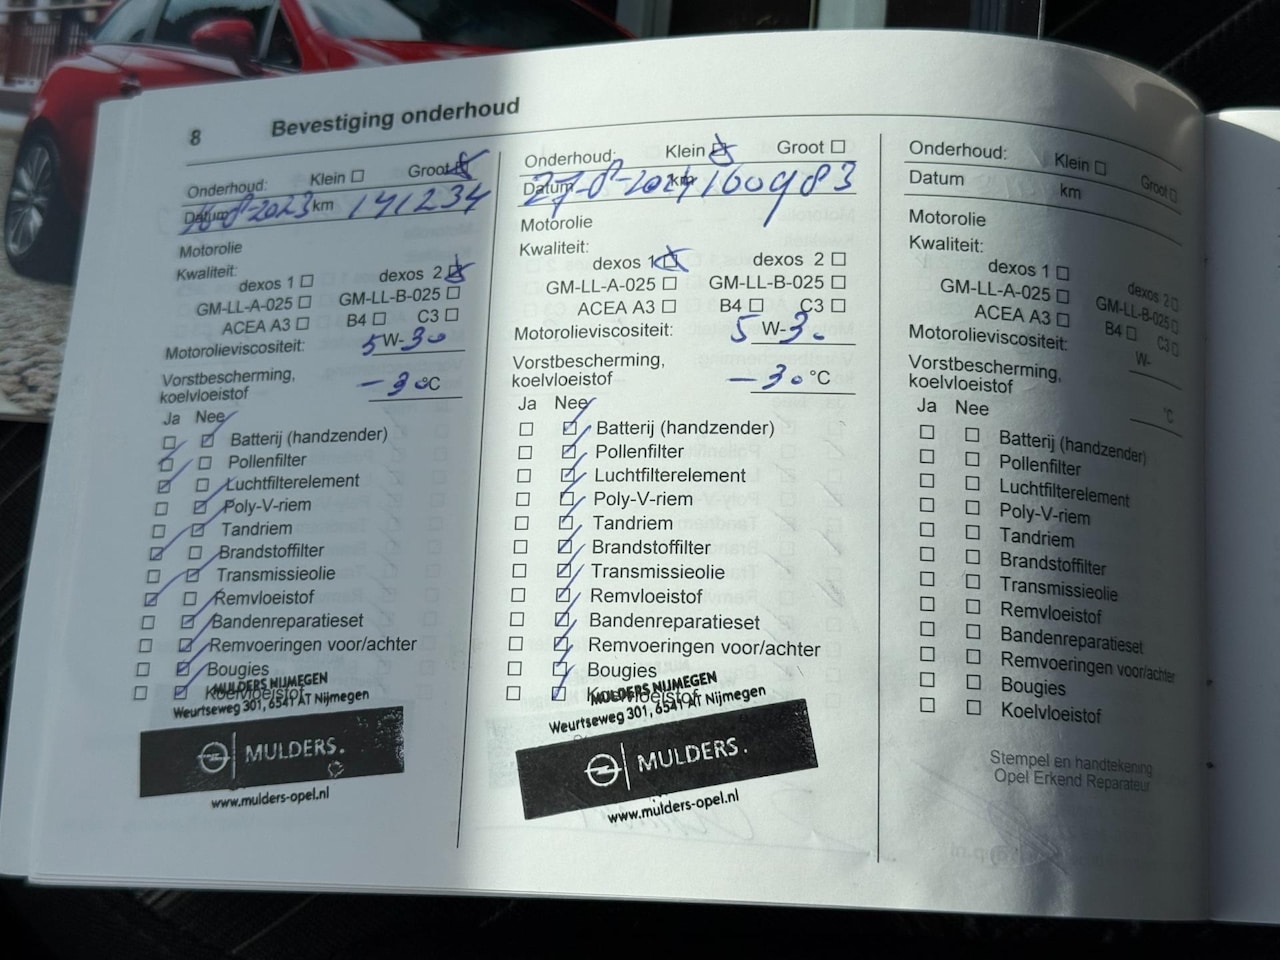 8 Bevestiging onderhoud
Onderhoud: Klein ☐ Groot ☒
Datum 16-8-2023 km 141234
Motorolie
Kwaliteit:
dexos 1 ☐ dexos 2 ☒
GM-LL-A-025 ☐ GM-LL-B-025 ☐
ACEA A3 ☐ B4 ☐ C3 ☐
Motorolieviscositeit: 5 W-30
Vorstbescherming,
koelvloeistof -30 °C
Ja Nee
Batterij (handzender)
Pollenfilter
Luchtfilterelement
Poly-V-riem
Tandriem
Brandstoffilter
Transmissieolie
Remvloeistof
Bandenreparatieset
Remvoeringen voor/achter
Bougies
Koelvloeistof
MULDERS NIJMEGEN
Weurtseweg 301, 6541 AT Nijmegen
MULDERS.
www.mulders-opel.nl
Onderhoud: Klein ☒ Groot ☐
Datum 27-8-2024 km 160983
Motorolie
Kwaliteit:
dexos 1 ☒ dexos 2 ☐
GM-LL-A-025 ☐ GM-LL-B-025 ☐
ACEA A3 ☐ B4 ☐ C3 ☐
Motorolieviscositeit: 5 W-30
Vorstbescherming,
koelvloeistof -30 °C
Ja Nee
Batterij (handzender)
Pollenfilter
Luchtfilterelement
Poly-V-riem
Tandriem
Brandstoffilter
Transmissieolie
Remvloeistof
Bandenreparatieset
Remvoeringen voor/achter
Bougies
Koelvloeistof
MULDERS NIJMEGEN
Weurtseweg 301, 6541 AT Nijmegen
MULDERS.
www.mulders-opel.nl
Onderhoud: Klein ☐ Groot ☐
Datum km
Motorolie
Kwaliteit:
dexos 1 ☐ dexos 2 ☐
GM-LL-A-025 ☐ GM-LL-B-025 ☐
ACEA A3 ☐ B4 ☐ C3 ☐
Motorolieviscositeit: W-
Vorstbescherming,
koelvloeistof °C
Ja Nee
Batterij (handzender)
Pollenfilter
Luchtfilterelement
Poly-V-riem
Tandriem
Brandstoffilter
Transmissieolie
Remvloeistof
Bandenreparatieset
Remvoeringen voor/achter
Bougies
Koelvloeistof
Stempel en handtekening
Opel Erkend Reparateur